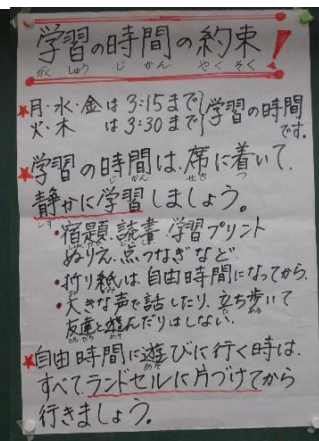 学習の時間の約束!
がくしゅう じかん やくそく
★月・水・金は3:15まで}学習の時間
火・木 は3:30まで です。
★学習の時間は、席に着いて、
じかん せき つ
静かに学習しましょう。
しず
・宿題、読書、学習プリント
ぬりえ、点つなぎなど
・折り紙は、自由時間になってから。
・大きな声で話したり、立ち歩いて
友達と遊んだりはしない。
★自由時間に遊びに行く時は、
すべてランドセルに片づけてから
行きましょう。